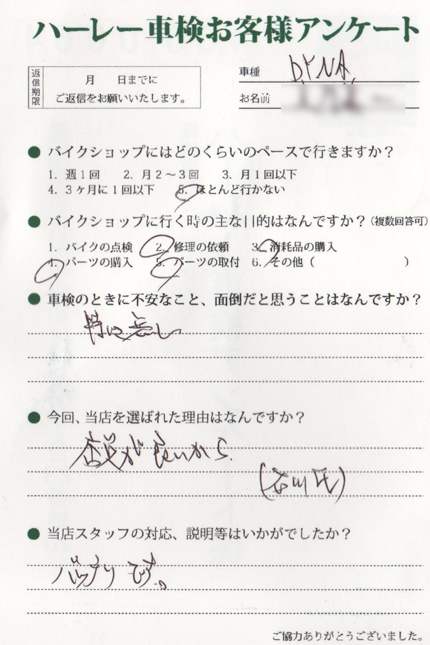 ハーレー車検お客様アンケート
返信期限
月 日までに
ご返信をお願いいたします。
車種 DYNA
お名前
● バイクショップにはどのくらいのペースで行きますか?
1. 週1回 2. 月2〜3回 3. 月1回以下
4. 3ヶ月に1回以下 5. ほとんど行かない
● バイクショップに行く時の主な目的はなんですか?(複数回答可)
1. バイクの点検 2. 修理の依頼 3. 消耗品の購入
4. パーツの購入 5. パーツの取付 6. その他( )
● 車検のときに不安なこと、面倒だと思うことはなんですか?
特に無し
● 今回、当店を選ばれた理由はなんですか?
店員が良いから
(石川氏)
● 当店スタッフの対応、説明等はいかがでしたか?
バッチリです。
ご協力ありがとうございました。